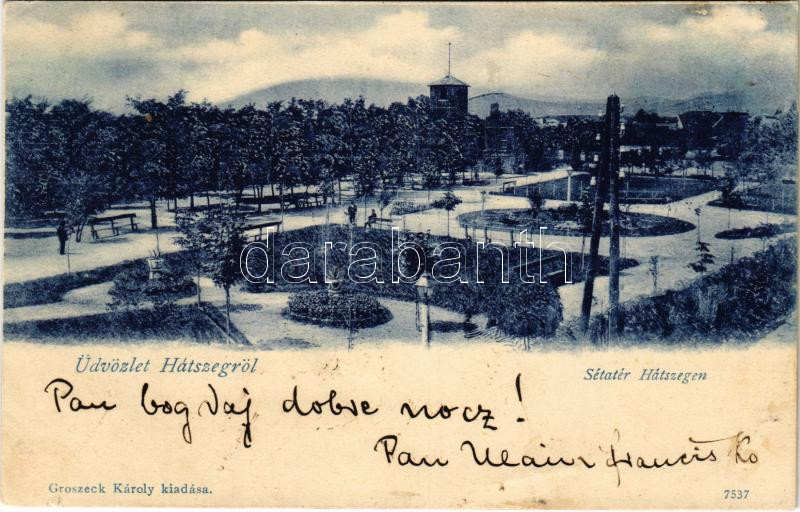 darabanth
Üdvözlet Hátszegről
Sétatér Hátszegen
Pan bog daj dobre nocz!
Pan
Groszeck Károly kiadása.
7537